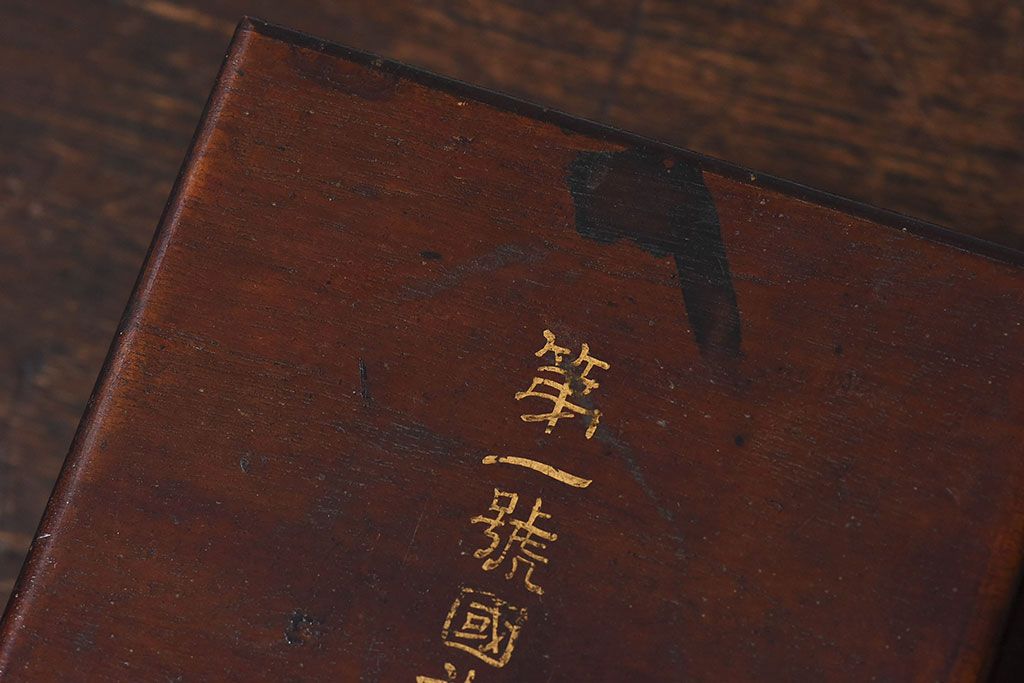 第一號國